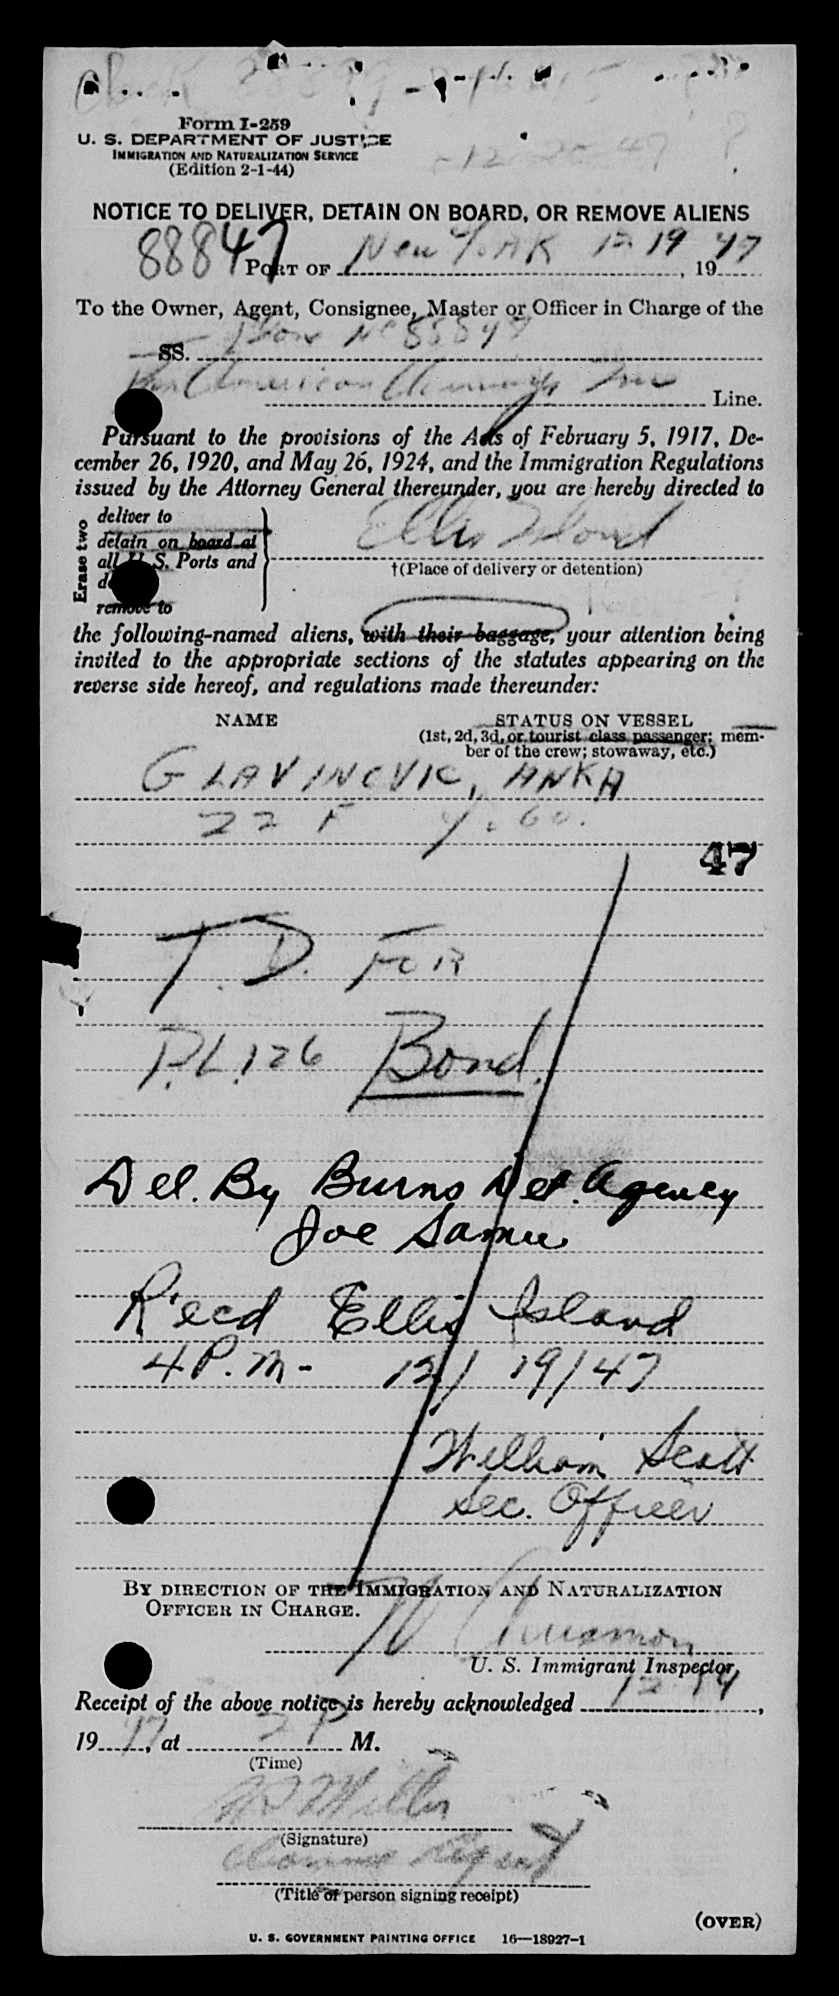 Check
Form I-259
U. S. DEPARTMENT OF JUSTICE
IMMIGRATION AND NATURALIZATION SERVICE
(Edition 2-1-44)
12-20-47 ?
NOTICE TO DELIVER, DETAIN ON BOARD, OR REMOVE ALIENS
88847
PORT OF New York 12 19, 19 47
To the Owner, Agent, Consignee, Master or Officer in Charge of the
SS. Plane No 88847
Pan American Airways Inc Line.
Pursuant to the provisions of the Acts of February 5, 1917, De-
cember 26, 1920, and May 26, 1924, and the Immigration Regulations
issued by the Attorney General thereunder, you are hereby directed to
Erase two
deliver to
detain on board at
all U. S. Ports and
remove to
Ellis Island
†(Place of delivery or detention)
the following-named aliens, with their baggage, your attention being
invited to the appropriate sections of the statutes appearing on the
reverse side hereof, and regulations made thereunder:
NAME
STATUS ON VESSEL
(1st, 2d, 3d, or tourist class passenger; mem-
ber of the crew; stowaway, etc.)
GLAVINOVIC, ANKA
22 F
47
T.D. FOR
P.L. 126 Bond.
Del. By Burns Det. Agency
Joe
R'ecd Ellis Island
4 P.M- 12/19/47
William Scott
Sec. Officer
BY DIRECTION OF THE IMMIGRATION AND NATURALIZATION
OFFICER IN CHARGE.
U. S. Immigrant Inspector.
Receipt of the above notice is hereby acknowledged 12-19,
19 47, at 2 P M.
(Time)
(Signature)
Agent
(Title of person signing receipt)
(OVER)
U. S. GOVERNMENT PRINTING OFFICE 16—18927-1